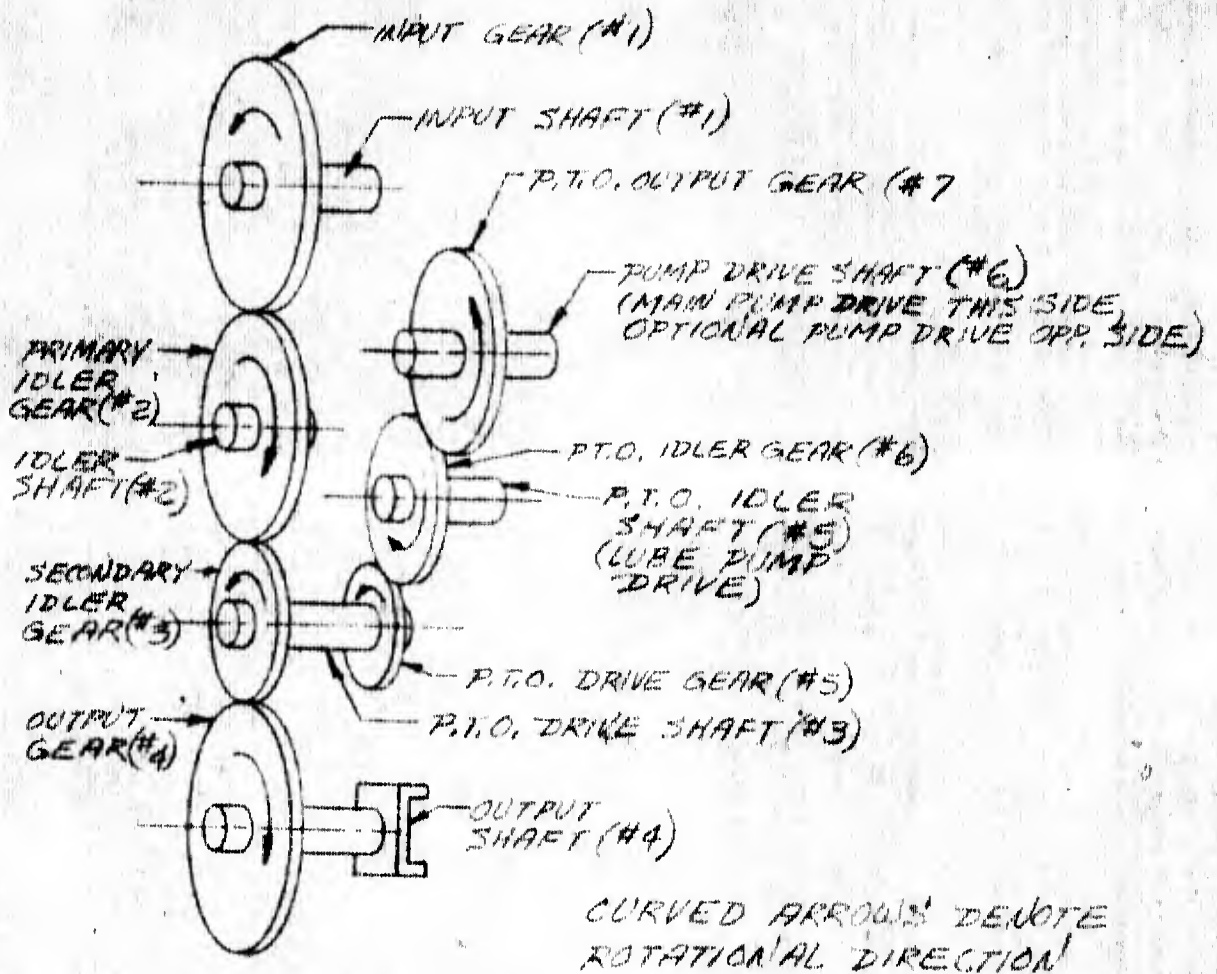 INPUT GEAR (#1)
INPUT SHAFT (#1)
P.T.O. OUTPUT GEAR (#7
PUMP DRIVE SHAFT (#6)
(MAIN PUMP DRIVE THIS SIDE,
OPTIONAL PUMP DRIVE OPP. SIDE)
PRIMARY
IDLER
GEAR (#2)
IDLER
SHAFT (#2)
P.T.O. IDLER GEAR (#6)
P.T.O. IDLER
SHAFT (#5)
(LUBE PUMP
DRIVE)
SECONDARY
IDLER
GEAR (#3)
P.T.O. DRIVE GEAR (#5)
P.T.O. DRIVE SHAFT (#3)
OUTPUT
GEAR (#4)
OUTPUT
SHAFT (#4)
CURVED ARROWS DENOTE
ROTATIONAL DIRECTION